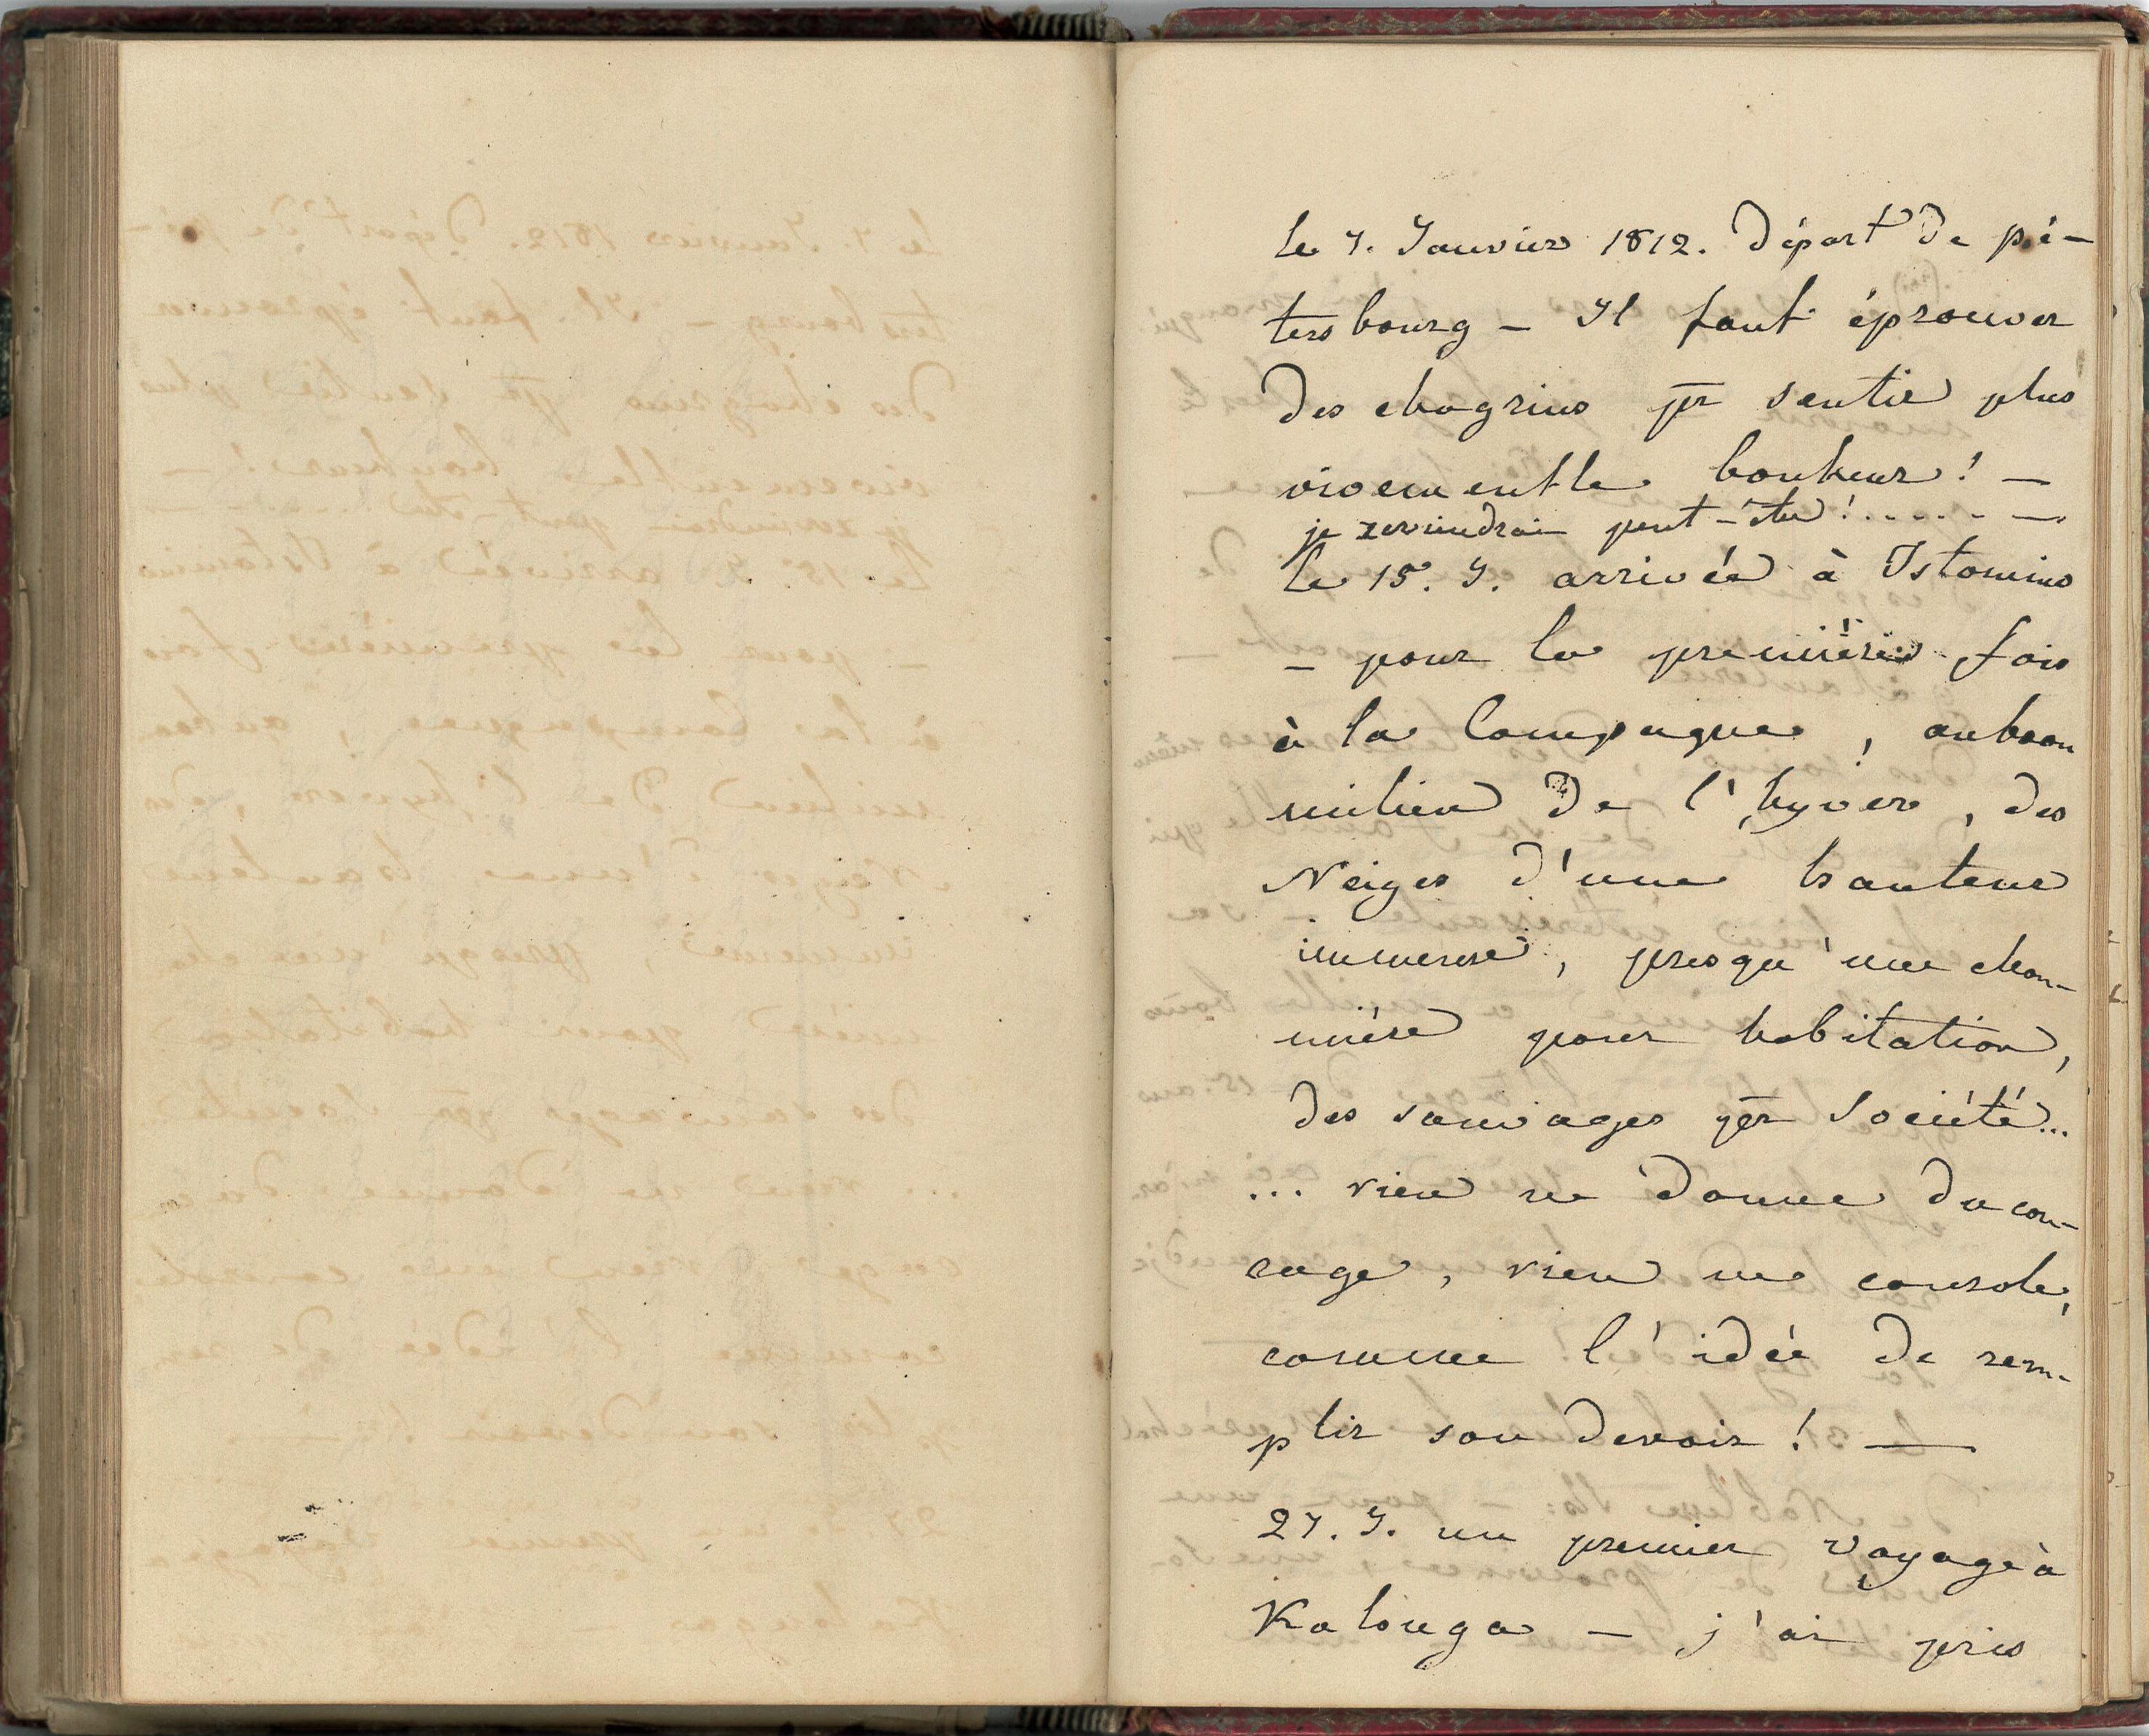 le 7. Janvier 1812. Départ de pé-
tersbourg - Il faut éprouver
des chagrins pr sentir plus
vivement le bonheur! -
je reviendrai peut-être! . . . . . -
le 15. J. arrivée à Istomino
- pour la première fois
à la Campagne, au beau
milieu de l'hyver, des
Neiges d'une hauteur
immense, presqu'une chau-
mière pour habitation,
des sauvages pr Société...
... rien ne donne du cou-
rage, rien ne console,
comme l'idée de rem-
plir son devoir! —
27. J. un premier voyage à
Kalouga - j'ai pris